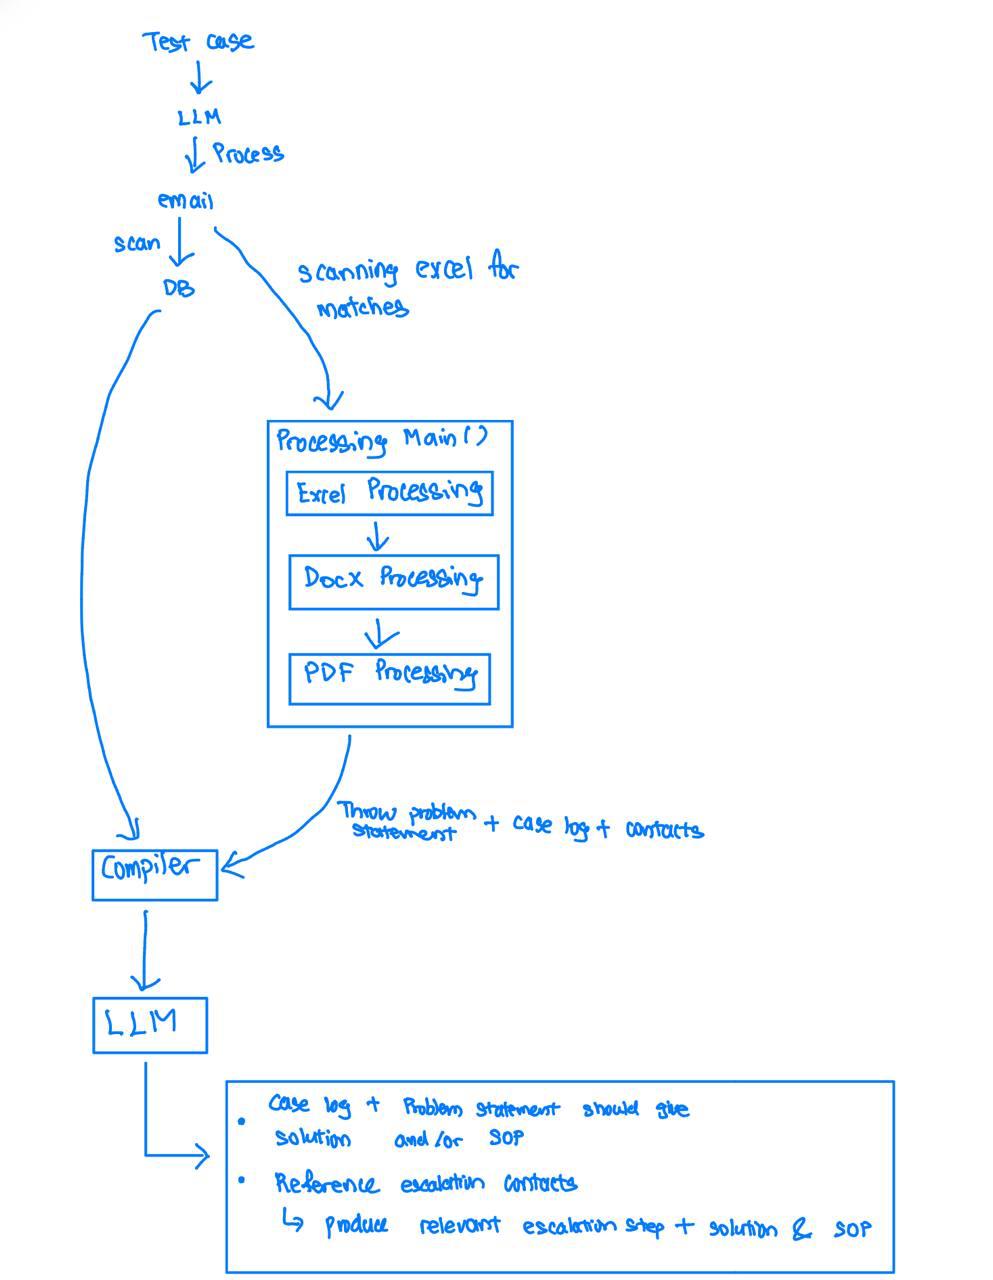 Test case
LLM
Process
email
scan
DB
scanning excel for
matches
Processing Main()
Excel Processing
Docx Processing
PDF Processing
Throw problem
statement + case log + contacts
Compiler
LLM
• case log + Problem statement should give
solution and/or SOP
• Reference escalation contacts
↳ produce relevant escalation step + solution & SOP